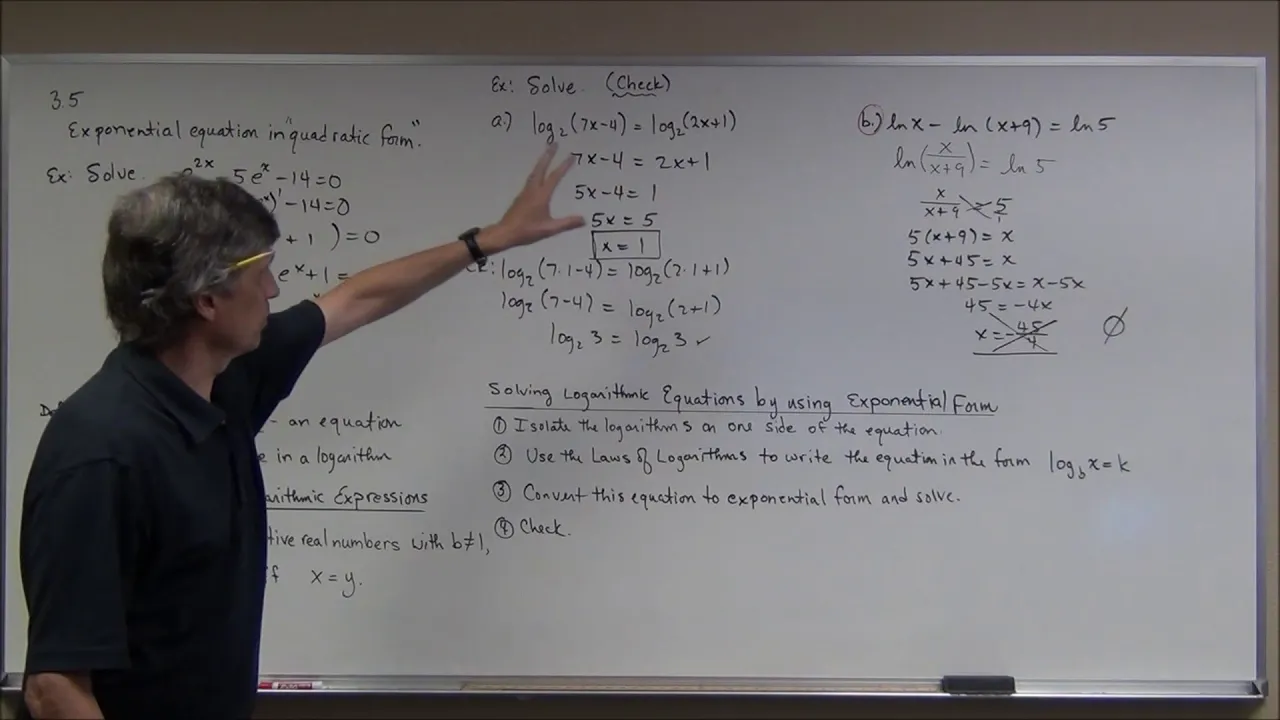 3.5
Exponential equation in "quadratic form."
Ex: Solve. e^2x 5e^x - 14 = 0
)' - 14 = 0
+ 1 ) = 0
e^x + 1 =
- an equation
in a logarithm
Expressions
real numbers with b ≠ 1,
x = y.
Ex: Solve. (Check)
a.) log₂(7x-4) = log₂(2x+1)
7x-4 = 2x+1
5x-4 = 1
5x = 5
x = 1
log₂(7·1-4) = log₂(2·1+1)
log₂(7-4) = log₂(2+1)
log₂3 = log₂3 ✓
b.) ln x - ln(x+9) = ln 5
ln(x/x+9) = ln 5
x/x+9 = 5/1
5(x+9) = x
5x+45 = x
5x+45-5x = x-5x
45 = -4x
x = -45/4 ∅
Solving Logarithmic Equations by using Exponential Form
① Isolate the logarithms on one side of the equation.
② Use the Laws of Logarithms to write the equation in the form log_b x = k
③ Convert this equation to exponential form and solve.
④ Check.